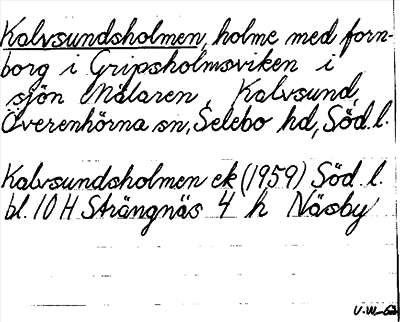 Kalvsundsholmen, holme med forn-
borg i Gripsholmsviken i
sjön Mälaren, Kalvsund,
Överenhörna sn, Selebo hd, Söd.l.
Kalvsundsholmen ek (1959) Söd.l.
bl. 10 H Strängnäs 4 h Näsby